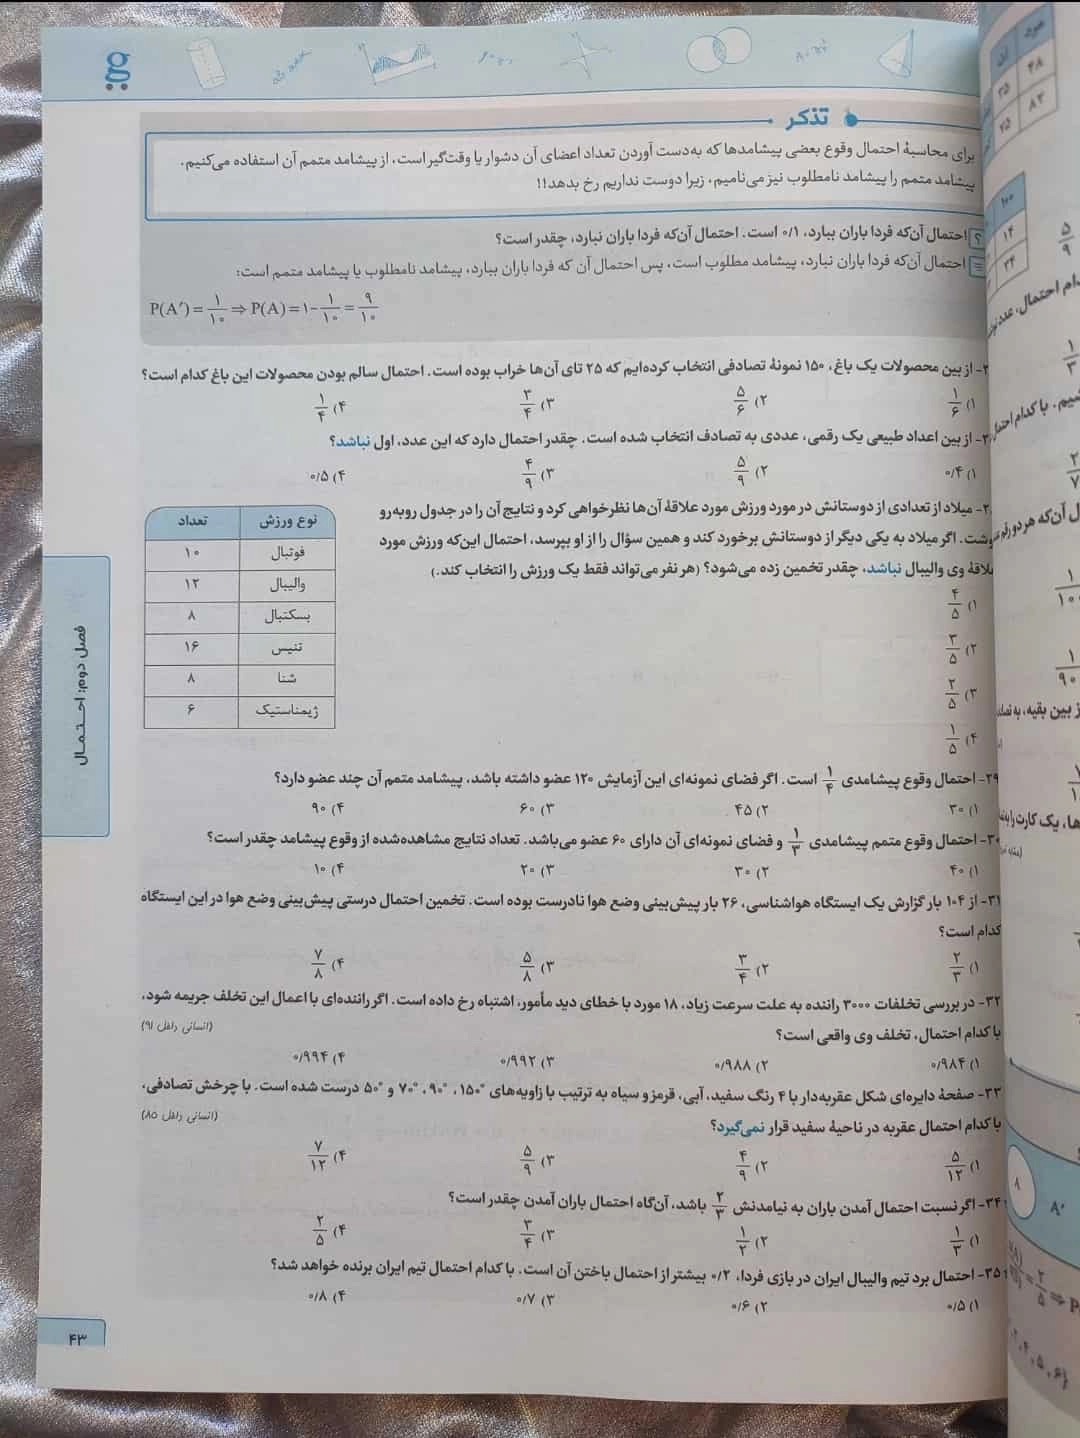 تذکر
برای محاسبهٔ احتمال وقوع بعضی پیشامدها که به‌دست آوردن تعداد اعضای آن دشوار یا وقت‌گیر است، از پیشامد متمم آن استفاده می‌کنیم.
پیشامد متمم را پیشامد نامطلوب نیز می‌نامیم، زیرا دوست نداریم رخ بدهد!!
احتمال آن‌که فردا باران ببارد، ۰/۱ است. احتمال آن‌که فردا باران نبارد، چقدر است؟
احتمال آن‌که فردا باران نبارد، پیشامد مطلوب است، پس احتمال آن که فردا باران ببارد، پیشامد نامطلوب یا پیشامد متمم است:
P(A′) = ۱/۱۰ ⇒ P(A) = ۱ - ۱/۱۰ = ۹/۱۰
از بین محصولات یک باغ، ۱۵۰ نمونهٔ تصادفی انتخاب کرده‌ایم که ۲۵ تای آن‌ها خراب بوده است. احتمال سالم بودن محصولات این باغ کدام است؟
۱) ۱/۶ ۲) ۵/۶ ۳) ۳/۴ ۴) ۱/۴
از بین اعداد طبیعی یک رقمی، عددی به تصادف انتخاب شده است. چقدر احتمال دارد که این عدد، اول نباشد؟
۱) ۰/۴ ۲) ۵/۹ ۳) ۴/۹ ۴) ۰/۵
میلاد از تعدادی از دوستانش در مورد ورزش مورد علاقهٔ آن‌ها نظرخواهی کرد و نتایج آن را در جدول روبه‌رو
نوشت. اگر میلاد به یکی دیگر از دوستانش برخورد کند و همین سؤال را از او بپرسد، احتمال این‌که ورزش مورد
علاقهٔ وی والیبال نباشد، چقدر تخمین زده می‌شود؟ (هر نفر می‌تواند فقط یک ورزش را انتخاب کند.)
۱) ۴/۵
۲) ۳/۵
۳) ۲/۵
۴) ۱/۵
نوع ورزش تعداد
فوتبال ۱۰
والیبال ۱۲
بسکتبال ۸
تنیس ۱۶
شنا ۸
ژیمناستیک ۶
۲۹- احتمال وقوع پیشامدی ۱/۴ است. اگر فضای نمونه‌ای این آزمایش ۱۲۰ عضو داشته باشد، پیشامد متمم آن چند عضو دارد؟
۱) ۳۰ ۲) ۴۵ ۳) ۶۰ ۴) ۹۰
۳۰- احتمال وقوع متمم پیشامدی ۱/۳ و فضای نمونه‌ای آن دارای ۶۰ عضو می‌باشد. تعداد نتایج مشاهده‌شده از وقوع پیشامد چقدر است؟
۱) ۴۰ ۲) ۳۰ ۳) ۲۰ ۴) ۱۰
۳۱- از ۱۰۴ بار گزارش یک ایستگاه هواشناسی، ۲۶ بار پیش‌بینی وضع هوا نادرست بوده است. تخمین احتمال درستی پیش‌بینی وضع هوا در این ایستگاه
کدام است؟
۱) ۲/۳ ۲) ۳/۴ ۳) ۵/۸ ۴) ۷/۸
۳۲- در بررسی تخلفات ۳۰۰۰ راننده به علت سرعت زیاد، ۱۸ مورد با خطای دید مأمور، اشتباه رخ داده است. اگر راننده‌ای با اعمال این تخلف جریمه شود،
با کدام احتمال، تخلف وی واقعی است؟ (انسانی داخل ۹۱)
۱) ۰/۹۸۴ ۲) ۰/۹۸۸ ۳) ۰/۹۹۲ ۴) ۰/۹۹۴
۳۳- صفحهٔ دایره‌ای شکل عقربه‌دار با ۴ رنگ سفید، آبی، قرمز و سیاه به ترتیب با زاویه‌های ۱۵۰°، ۹۰°، ۷۰° و ۵۰° درست شده است. با چرخش تصادفی،
با کدام احتمال عقربه در ناحیهٔ سفید قرار نمی‌گیرد؟ (انسانی داخل ۸۵)
۱) ۵/۱۲ ۲) ۴/۹ ۳) ۵/۹ ۴) ۷/۱۲
۳۴- اگر نسبت احتمال آمدن باران به نیامدنش ۲/۳ باشد، آن‌گاه احتمال باران آمدن چقدر است؟
۱) ۱/۳ ۲) ۱/۲ ۳) ۳/۴ ۴) ۲/۵
۳۵- احتمال برد تیم والیبال ایران در بازی فردا، ۰/۲ بیشتر از احتمال باختن آن است. با کدام احتمال تیم ایران برنده خواهد شد؟
۱) ۰/۵ ۲) ۰/۶ ۳) ۰/۷ ۴) ۰/۸
فصل دوم: احتمال
۴۳